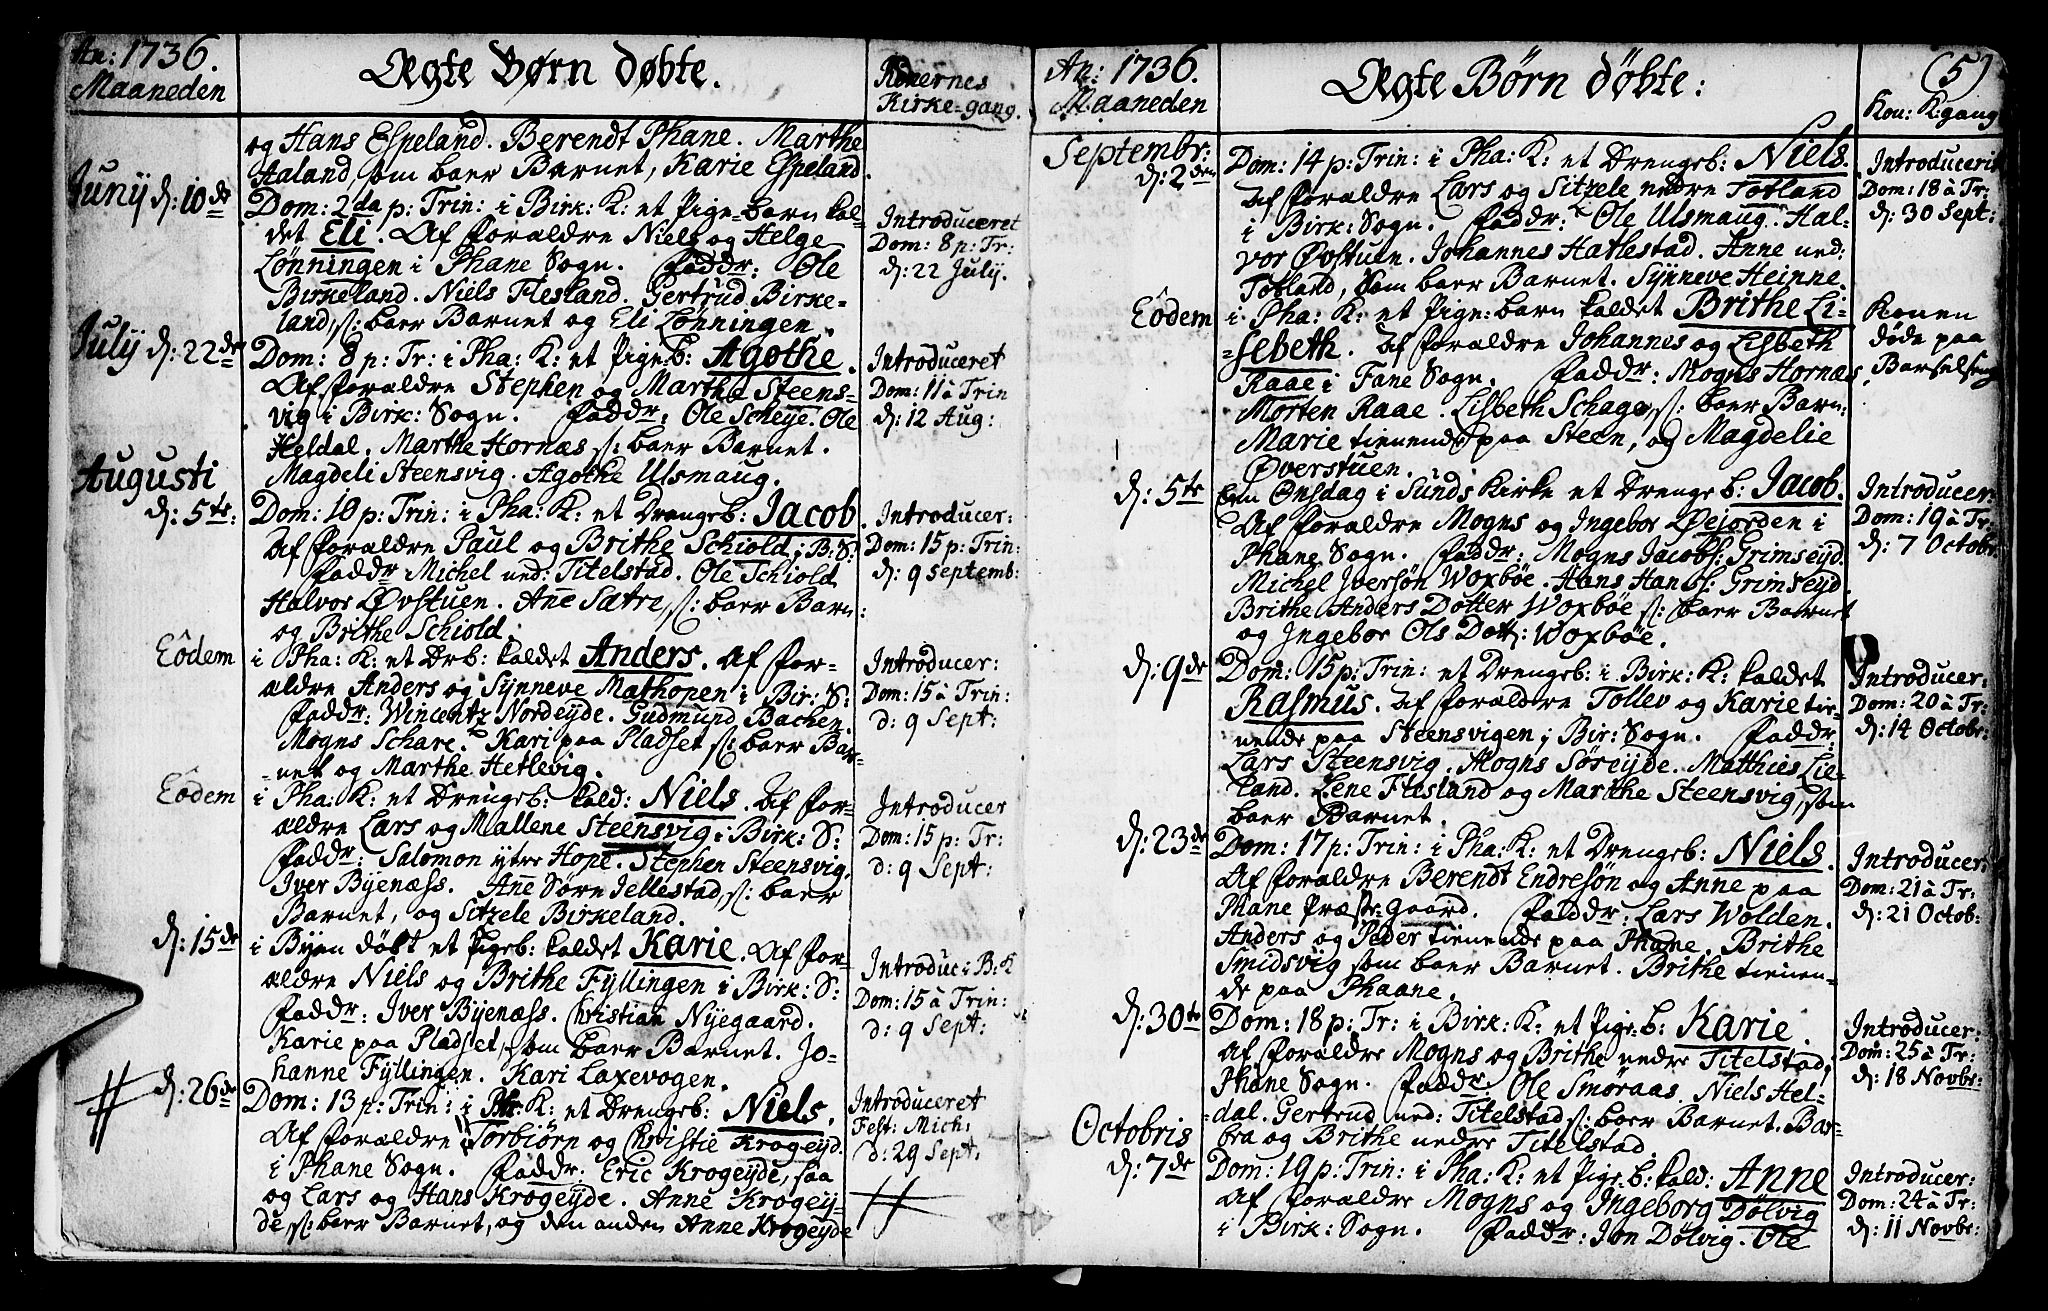 An: 1736.
Maaneden
Ægte Børn døbte.
Konernes
Kirke-gang.
og Hans Espeland. Berendt Phane. Marthe
Haland, som baer Barnet, Karie Espeland.
Junij d: 10de
Dom: 2da p: Trin: i Birk: K: et Pige-barn kal-
det Eli. Af foraldre Niels og Helge
Lønningen i Phane Sogn. Faddr: Ole
Birkeland. Niels Flesland. Gertrud Birke-
land, s: baer Barnet og Eli Lønningen.
Introduceret
Dom: 8 p: Tr:
d: 22 July.
July d: 22de
Dom: 8 p: Tr: i Pha: K: et Pigeb: Agothe.
Af foraldre Stephen og Marthe Steens-
vig i Birk: Sogn. Faddr: Ole Scheye. Ole
Heldal. Marthe Hornæs s: baer Barnet.
Magdeli Steensvig. Agothe Ulsmaug.
Introduceret
Dom: 11 à Trin
d: 12 Aug:
Augusti
d: 5te:
Dom: 10 p: Trin: i Pha: K: et Drengeb: Jacob.
Af foraldre Paul og Brithe Schiold i B: S:
Faddr Michel ned: Titelstad. Ole Schiold
Halvor Øvstuen. Anne Sætre, s: baer Barn:
og Brithe Schiold.
Introducer:
Dom: 15 p: Trin:
d: 9 Septemb:
Eôdem
i Pha: K: et Drb: kaldet Anders. Af for-
aldre Anders og Synneve Mathopen i Bir: S:
Faddr: Wincentz Nordeyde. Gudmund Bachen.
Mogns Schare. Kari paa Pladset s: baer Bar-
-net og Marthe Hetlevig.
Introducer:
Dom: 15 à Trin:
d: 9 Sept:
Eôdem
i Pha: K: et Drengeb: kald: Niels. Af for-
aldre Lars og Mallene Steensvig i Birk: S:
Faddr: Salomon ytre Hope. Stephen Steensvig.
Iver Byenæss. Anne Sørn Jellestad, s: baer
Barnet, og Sitzele Birkeland.
Introducer
Dom: 15 p: Tr:
d: 9 Sept:
d: 15de
i Byen døbt et Pigeb: kaldet Karie. Af for-
aldre Niels og Brithe Fyllingen i Birk: S:
Faddr: Iver Byenæss. Christian Nyegaard.
Karie paa Pladset, som baer Barnet. Jo-
hanne Fyllingen. Kari Laxevogen.
Introduc: i B: K
Dom: 15 à Trin:
d: 9 Sept:
d: 26de
Dom: 13 p: Trin: i Pha K: et Drengeb: Niels.
Af foraldre Torbiørn og Christie Krogeyd.
i Phane Sogn. Faddr: Eric Krogeyde, saa
og Lars og Hans Krogeyde. Anne Krogey-
de, s: baer Barnet, og den anden Anne Krogeyde
Introduceret
Fest: Mich:
d: 29 Sept.
An: 1736.
Maaneden
Ægte Børn døbte:
(5)
Kon: K: gang
Septembr:
d: 2den
Dom: 14 p: Trin: i Pha: K: et Drengeb: Niels.
Af foraldre Lars og Sitzele nedre Totland
i Birk: Sogn. Faddr: Ole Ulsmaug. Hal-
vor Øvstuen. Johannes Hatlestad. Anne ned:
Totland, som baer Barnet. Synneve Heinne.
Introducerit
Dom: 18 à Tr:
d: 30 Sept:
Eôdem
i Pha: K: et Pige-barn kaldet Brithe Li-
-sebeth. Af foraldre Johannes og Lisbeth
Raae i Fane Sogn. Faddr: Mogns Hornæs
Morten Raae. Lisbeth Schage, s: baer Barn:
Marie tienende paa Steen, og Magdelie
Øverstuen.
Konen
døde paa
Barselseng
d: 5te
Om Onsdag i Sunds Kirke et Drengeb: Jacob.
Af foraldre Mogns og Ingebor Øejorden i
Phane Sogn. Faddr: Mogns Jacobs: Grimseyd.
Michel Iversøn Woxbøe. Hans Hans: Grimseyd.
Brithe Anders Dotter Woxbøe s: baer Barnet
og Ingebor Ols Dott: Woxbøe.
Introducer:
Dom: 19 à Tr:
d: 7 Octobr:
d: 9de
Dom: 15 p: Trin: et Drengeb: i Birk: K: kaldet
Rasmus. Af foraldre Tollev og Karie tie-
nende paa Steensvigen i Bir: Sogn. Faddr:
Lars Steensvig. Mogns Søreyde. Matthies Lie-
land. Lene Flesland og Marthe Steensvig, som
baer Barnet.
Introducer:
Dom: 20 à Tr:
d: 14 Octobr:
d: 23de
Dom: 17 p: Trin: i Pha: K: et Drengeb: Niels.
Af foraldre Berendt Endresøn og Anne paa
Phane Præste-Gaard. Faddr: Lars Wolden.
Anders og Peder tienende paa Phane. Brithe
Smidsvig som baer Barnet. Brithe tienen-
de paa Phaane.
Introducer:
Dom: 21 à Tr:
d: 21 Octob:
d: 30te
Dom: 18 p: Tr: i Birk: K: et Pige: b: Karie.
Af foraldre Mogns og Brithe nedre Titelstad,
Phane Sogn. Faddr. Ole Smøraas. Niels Hel-
-dal. Gertrud ned: Titelstad s: baer Barnet. Bar-
bra og Brithe nedre Titelstad
Introducer:
Dom: 25 à Tr:
d: 18 Novbr:
Octobris
d: 7de
Dom: 19 p: Trin: i Pha: K: et Pige: b: kald: Anne
Af foraldre Mogns og Ingeborg Dølvig
i Birk: Sogn. Faddr: Jon Dølvig. Ole
Introducer:
Dom: 24 à Tr:
d: 11 Novbr: